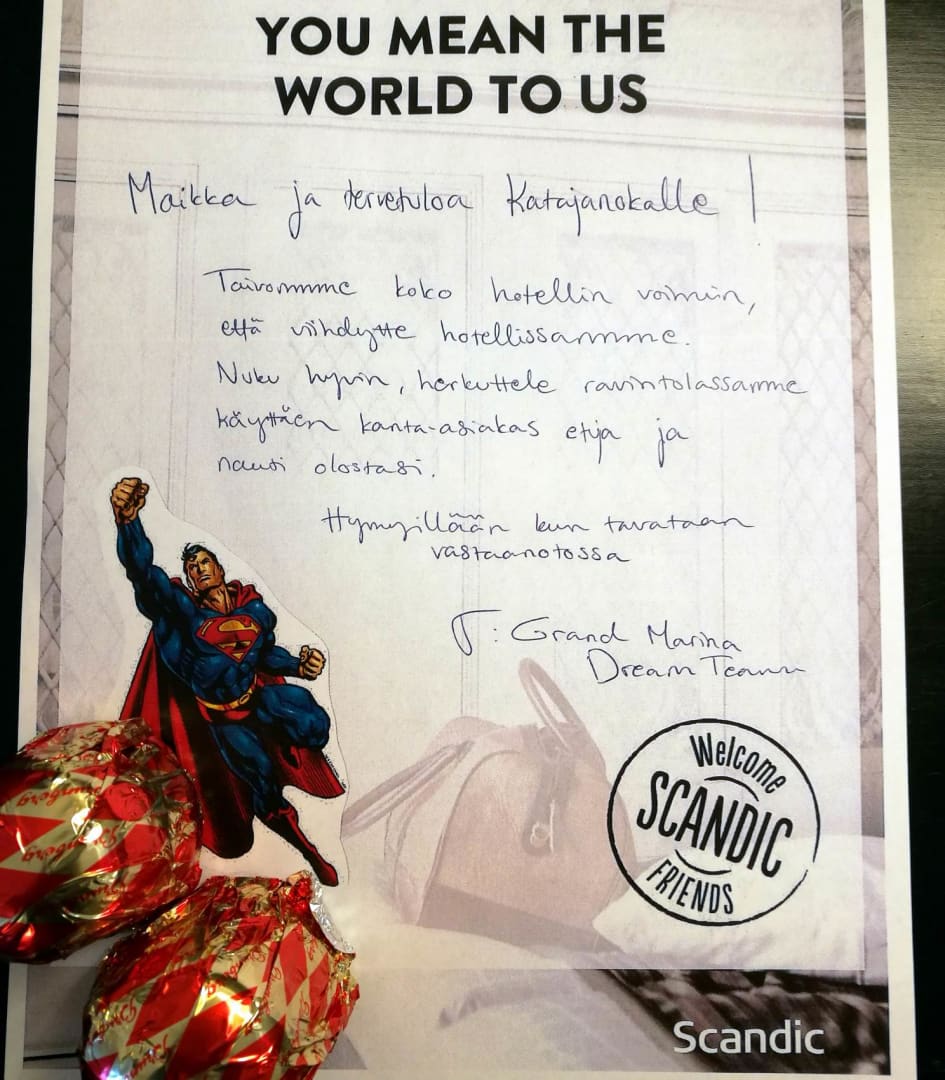 YOU MEAN THE
WORLD TO US
Moikka ja tervetuloa Katajanokalle !
Toivommme koko hotellin voimin,
että viihdytte hotellissammme.
Nuku hyvin, herkuttele ravintolassamme
käyttäen kanta-asiakas etuja ja
nauti olostasi.
Hymyillään kun tavataan
vastaanotossa
T: Grand Marina
Dream Team
Welcome
SCANDIC
FRIENDS
Scandic